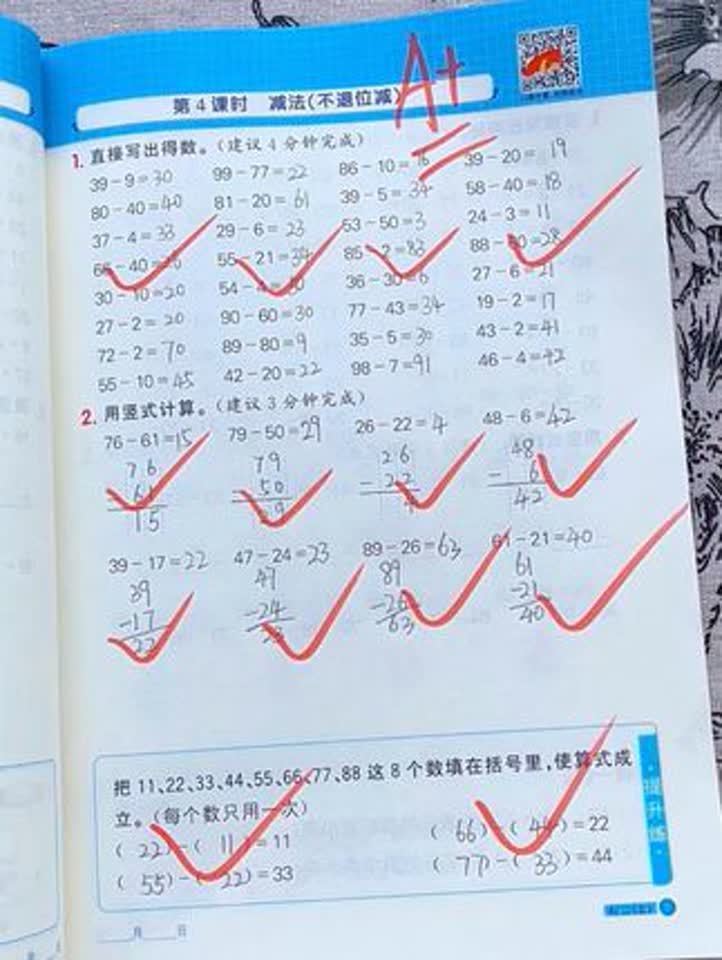 第4课时 减法(不退位减)
A+
1. 直接写出得数。(建议4分钟完成)
39-9=30 99-77=22 86-10=76 39-20=19
80-40=40 81-20=61 39-5=34 58-40=18
37-4=33 29-6=23 53-50=3 24-3=11
-40= 55-21=34 85-2=83 88-=28
30-10=20 54- 36-30=6 27-6=21
27-2=20 90-60=30 77-43=34 19-2=17
72-2=70 89-80=9 35-5=30 43-2=41
55-10=45 42-20=22 98-7=91 46-4=42
2. 用竖式计算。(建议3分钟完成)
76-61=15 79-50=29 26-22=4 48-6=42
76 79 26 48
61 50 -22 - 6
15 29 4 42
39-17=22 47-24=23 89-26=63 61-21=40
39 47 89 61
-17 -24 -26 -21
22 23 63 40
把11、22、33、44、55、66、77、88这8个数填在括号里,使算式成
立。(每个数只用一次)
(22)-(11)=11 (66)-(44)=22
(55)-(22)=33 (77)-(33)=44
提升练
月 日